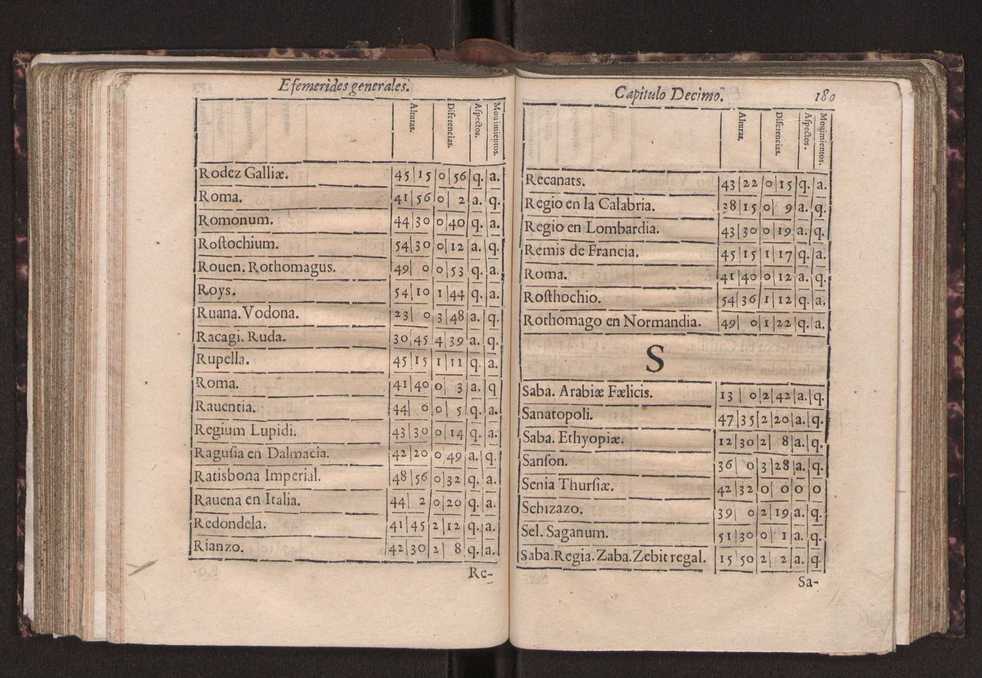 Efemerides generales.
Alturas. Diferencias. Aspectos. Mouimientos.
Rodez Galliæ. 45 15 0 56 q. a.
Roma. 41 56 0 2 a. q.
Romonum. 44 30 0 40 q. a.
Roſtochium. 54 30 0 12 a. q.
Rouen. Rothomagus. 49 0 0 53 q. a.
Roys. 54 10 1 44 q. a.
Ruana. Vodona. 23 0 3 48 a. q.
Racagi. Ruda. 30 45 4 39 a. q.
Rupella. 45 15 1 11 q. a.
Roma. 41 40 0 3 a. q
Rauentia. 44 0 0 5 q. a.
Regium Lupidi. 43 30 0 14 q. a.
Raguſia en Dalmacia. 42 20 0 49 a. q.
Ratisbona Imperial. 48 56 0 32 q. a.
Rauena en Italia. 44 2 0 20 q. a.
Redondela. 41 45 2 12 q. a.
Rianzo. 42 30 2 8 q. a.
Re-
Capitulo Decimo. 180
Alturas. Diferencias. Aspectos. Mouimientos.
Recanats. 43 22 0 15 q. a.
Regio en la Calabria. 28 15 0 9 a. q.
Regio en Lombardia. 43 30 0 19 a. q.
Remis de Francia. 45 15 1 17 q. a.
Roma. 41 40 0 12 a. q.
Roſthochio. 54 36 1 12 q. a.
Rothomago en Normandia. 49 0 1 22 q. a.
S
Saba. Arabiæ Fælicis. 13 0 2 42 a. q.
Sanatopoli. 47 35 2 20 a. q.
Saba. Ethyopiæ. 12 30 2 8 a. q.
Sanſon. 36 0 3 28 a. q.
Senia Thurſiæ. 42 32 0 0 0 0
Schizazo. 39 0 2 19 a. q.
Sel. Saganum. 51 30 0 1 a. q.
Saba. Regia. Zaba. Zebit regal. 15 50 2 2 a. q.
Sa-